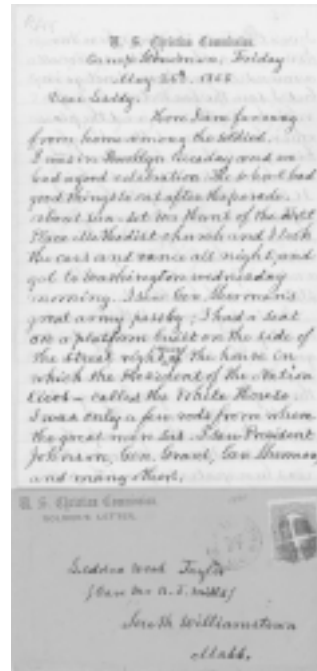 U. S. Christian Commission.
Camp Friday
May 26th, 1865
Dear
Here I am far away
from home among the soldiers.
I was in Brooklyn Tuesday and we
had a good celebration. The school had
good things to eat after the parade.
About Sun-set Mr Hunt of the
Place Methodist church and I took
the cars and rance all night, and
got to Washington wednesday
morning. I saw Gen. Sherman's
great army pass by; I had a seat
on a platform built on the side of
the street right of the house in
which the President of the Nation
lives - called the White House.
I was only a few rods from where
the great men sat. I saw President
Johnson, Gen. Grant, Gen Sherman,
and many others.
U. S. Christian Commission.
SOLDIER'S LETTER.
Geddes West Taylor
(Care Mr A. T. Mills)
South Williamstown
Mass.